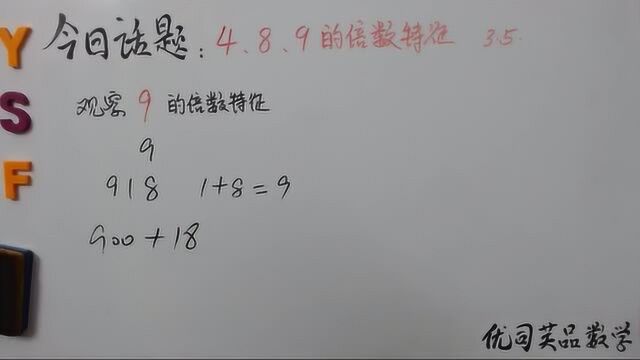 今日话题：4、8、9的倍数特征 3.5.
观察9的倍数特征
9
918 1+8=9
900+18
优司芙品数学
Y
S
F